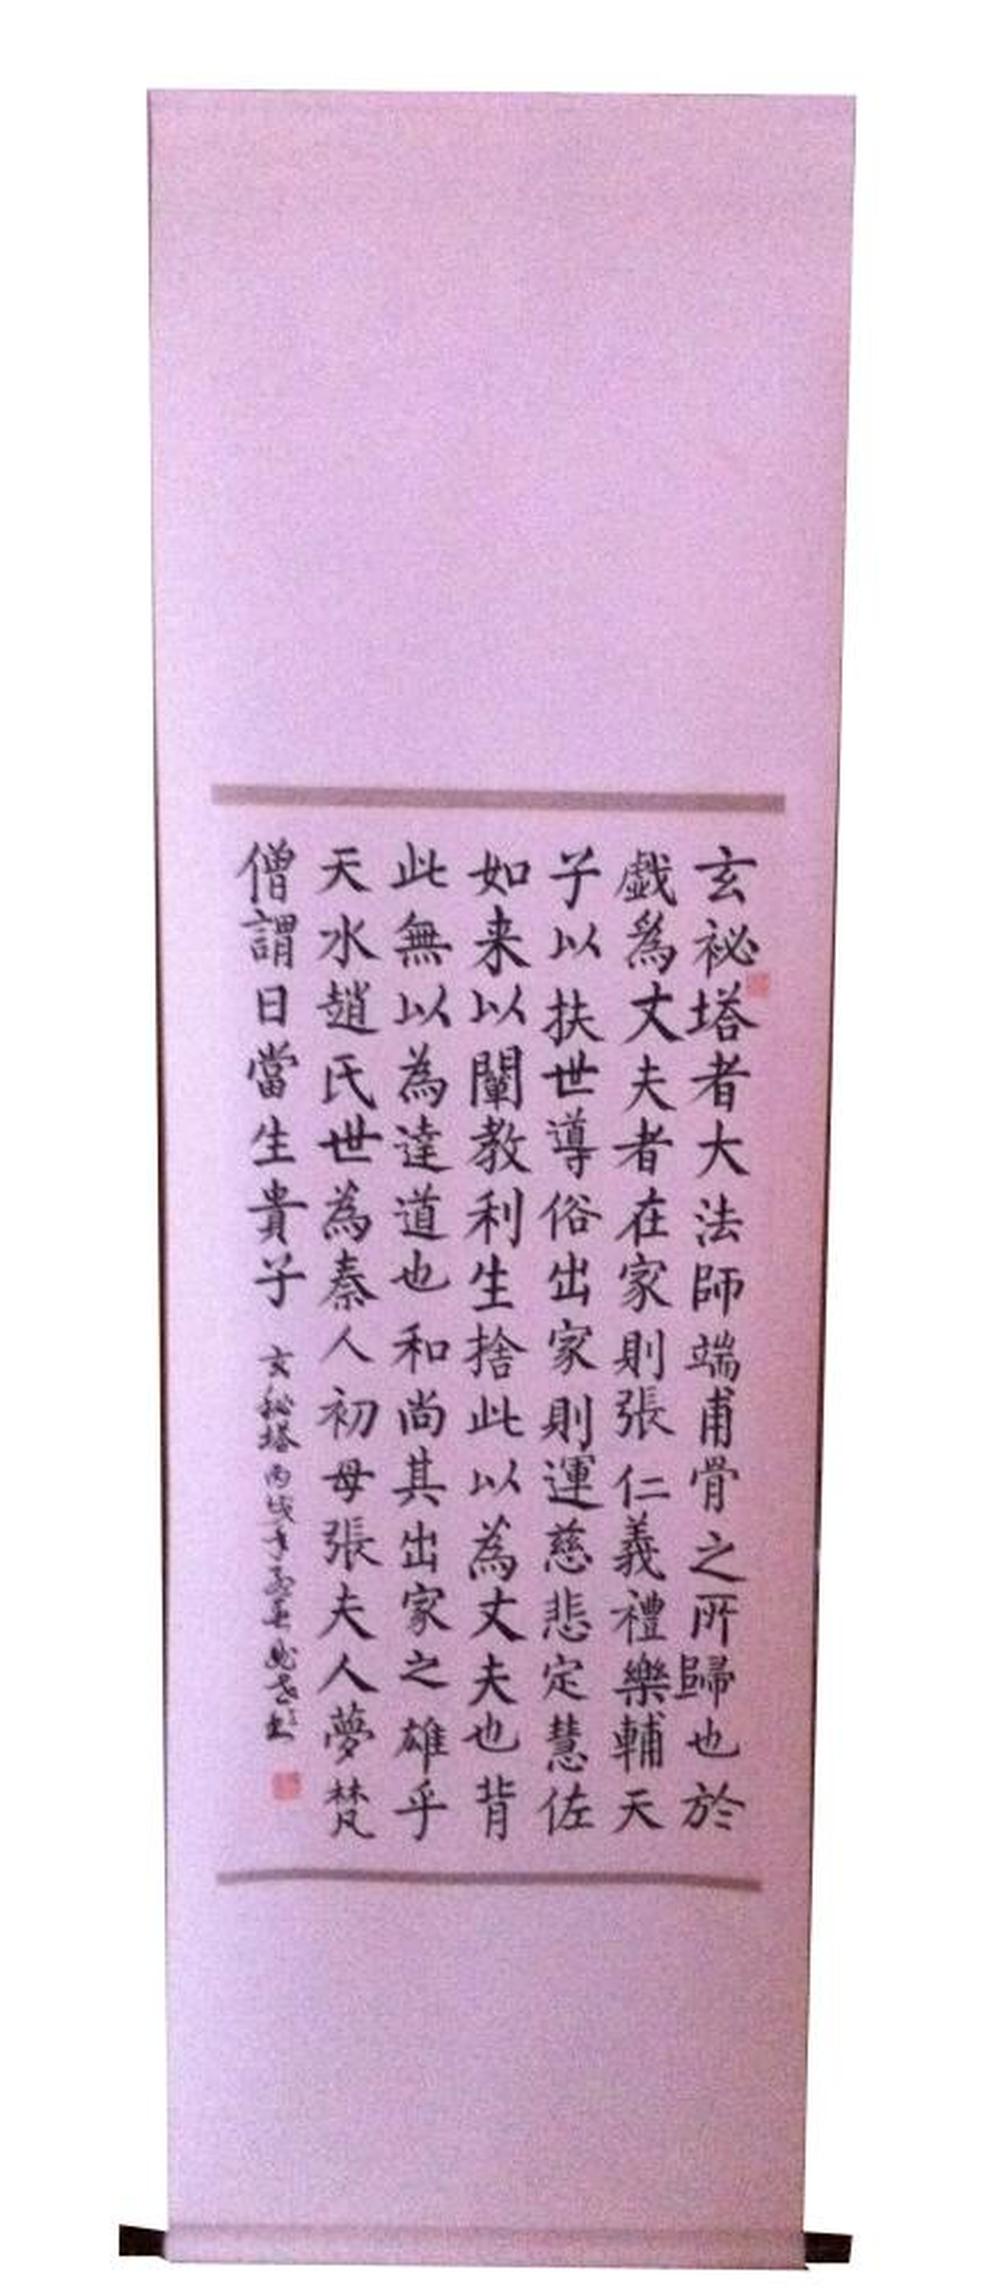 玄祕塔者大法師端甫骨之所歸也於
戯爲丈夫者在家則張仁義禮樂輔天
子以扶世導俗出家則運慈悲定慧佐
如来以闡教利生捨此以為丈夫也背
此無以為達道也和尚其出家之雄乎
天水趙氏世為秦人初母張夫人夢梵
僧謂曰當生貴子
玄秘塔丙戌